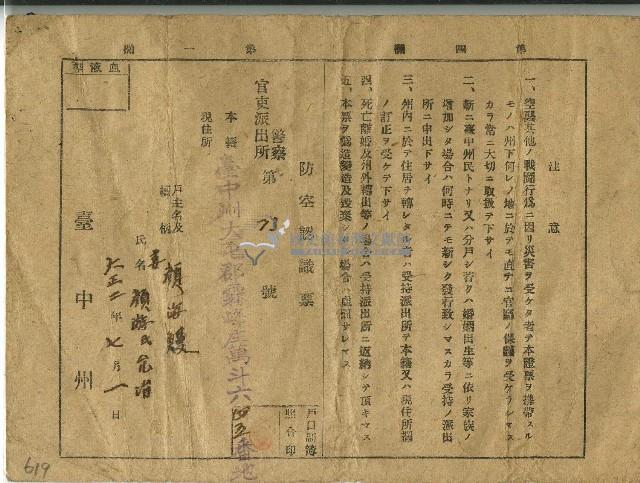 第四欄
注意
一、空襲其他ノ戰鬪行爲ニ因リ災害ヲ受ケタ者デ本證票ヲ携帶スル
モノハ州下何レノ地ニ於テモ直チニ官廳ノ保護ヲ受ケラレマス
カラ常ニ大切ニ取扱ヒ下サイ
二、新ニ臺中州民トナリ又ハ分戶シ若クハ婚姻出生等ニ依リ家族ノ
增加シタ場合ハ何時ニテモ新シク發行致シマスカラ受持ノ派出
所ニ申出下サイ
三、州內ニ於テ住居ヲ轉シタ者ハ受持派出所デ本籍又ハ現住所欄
ノ訂正ヲ受ケテ下サイ
四、死亡離婚及州外轉出等ノ場合ハ受持派出所ニ返納シテ頂キマス
五、本票ヲ僞造變造及毀棄シタ場合ハ處罰サレマス
第一欄
血液型
防空認識票
警察
官東派出所 第 73 號
本籍 臺中州大屯郡霧峰庄萬斗六四五番地
現住所
戶口調簿
照合印
戶主名及
續柄
氏名 顏游氏允
大正二年七月一日
臺中州
619